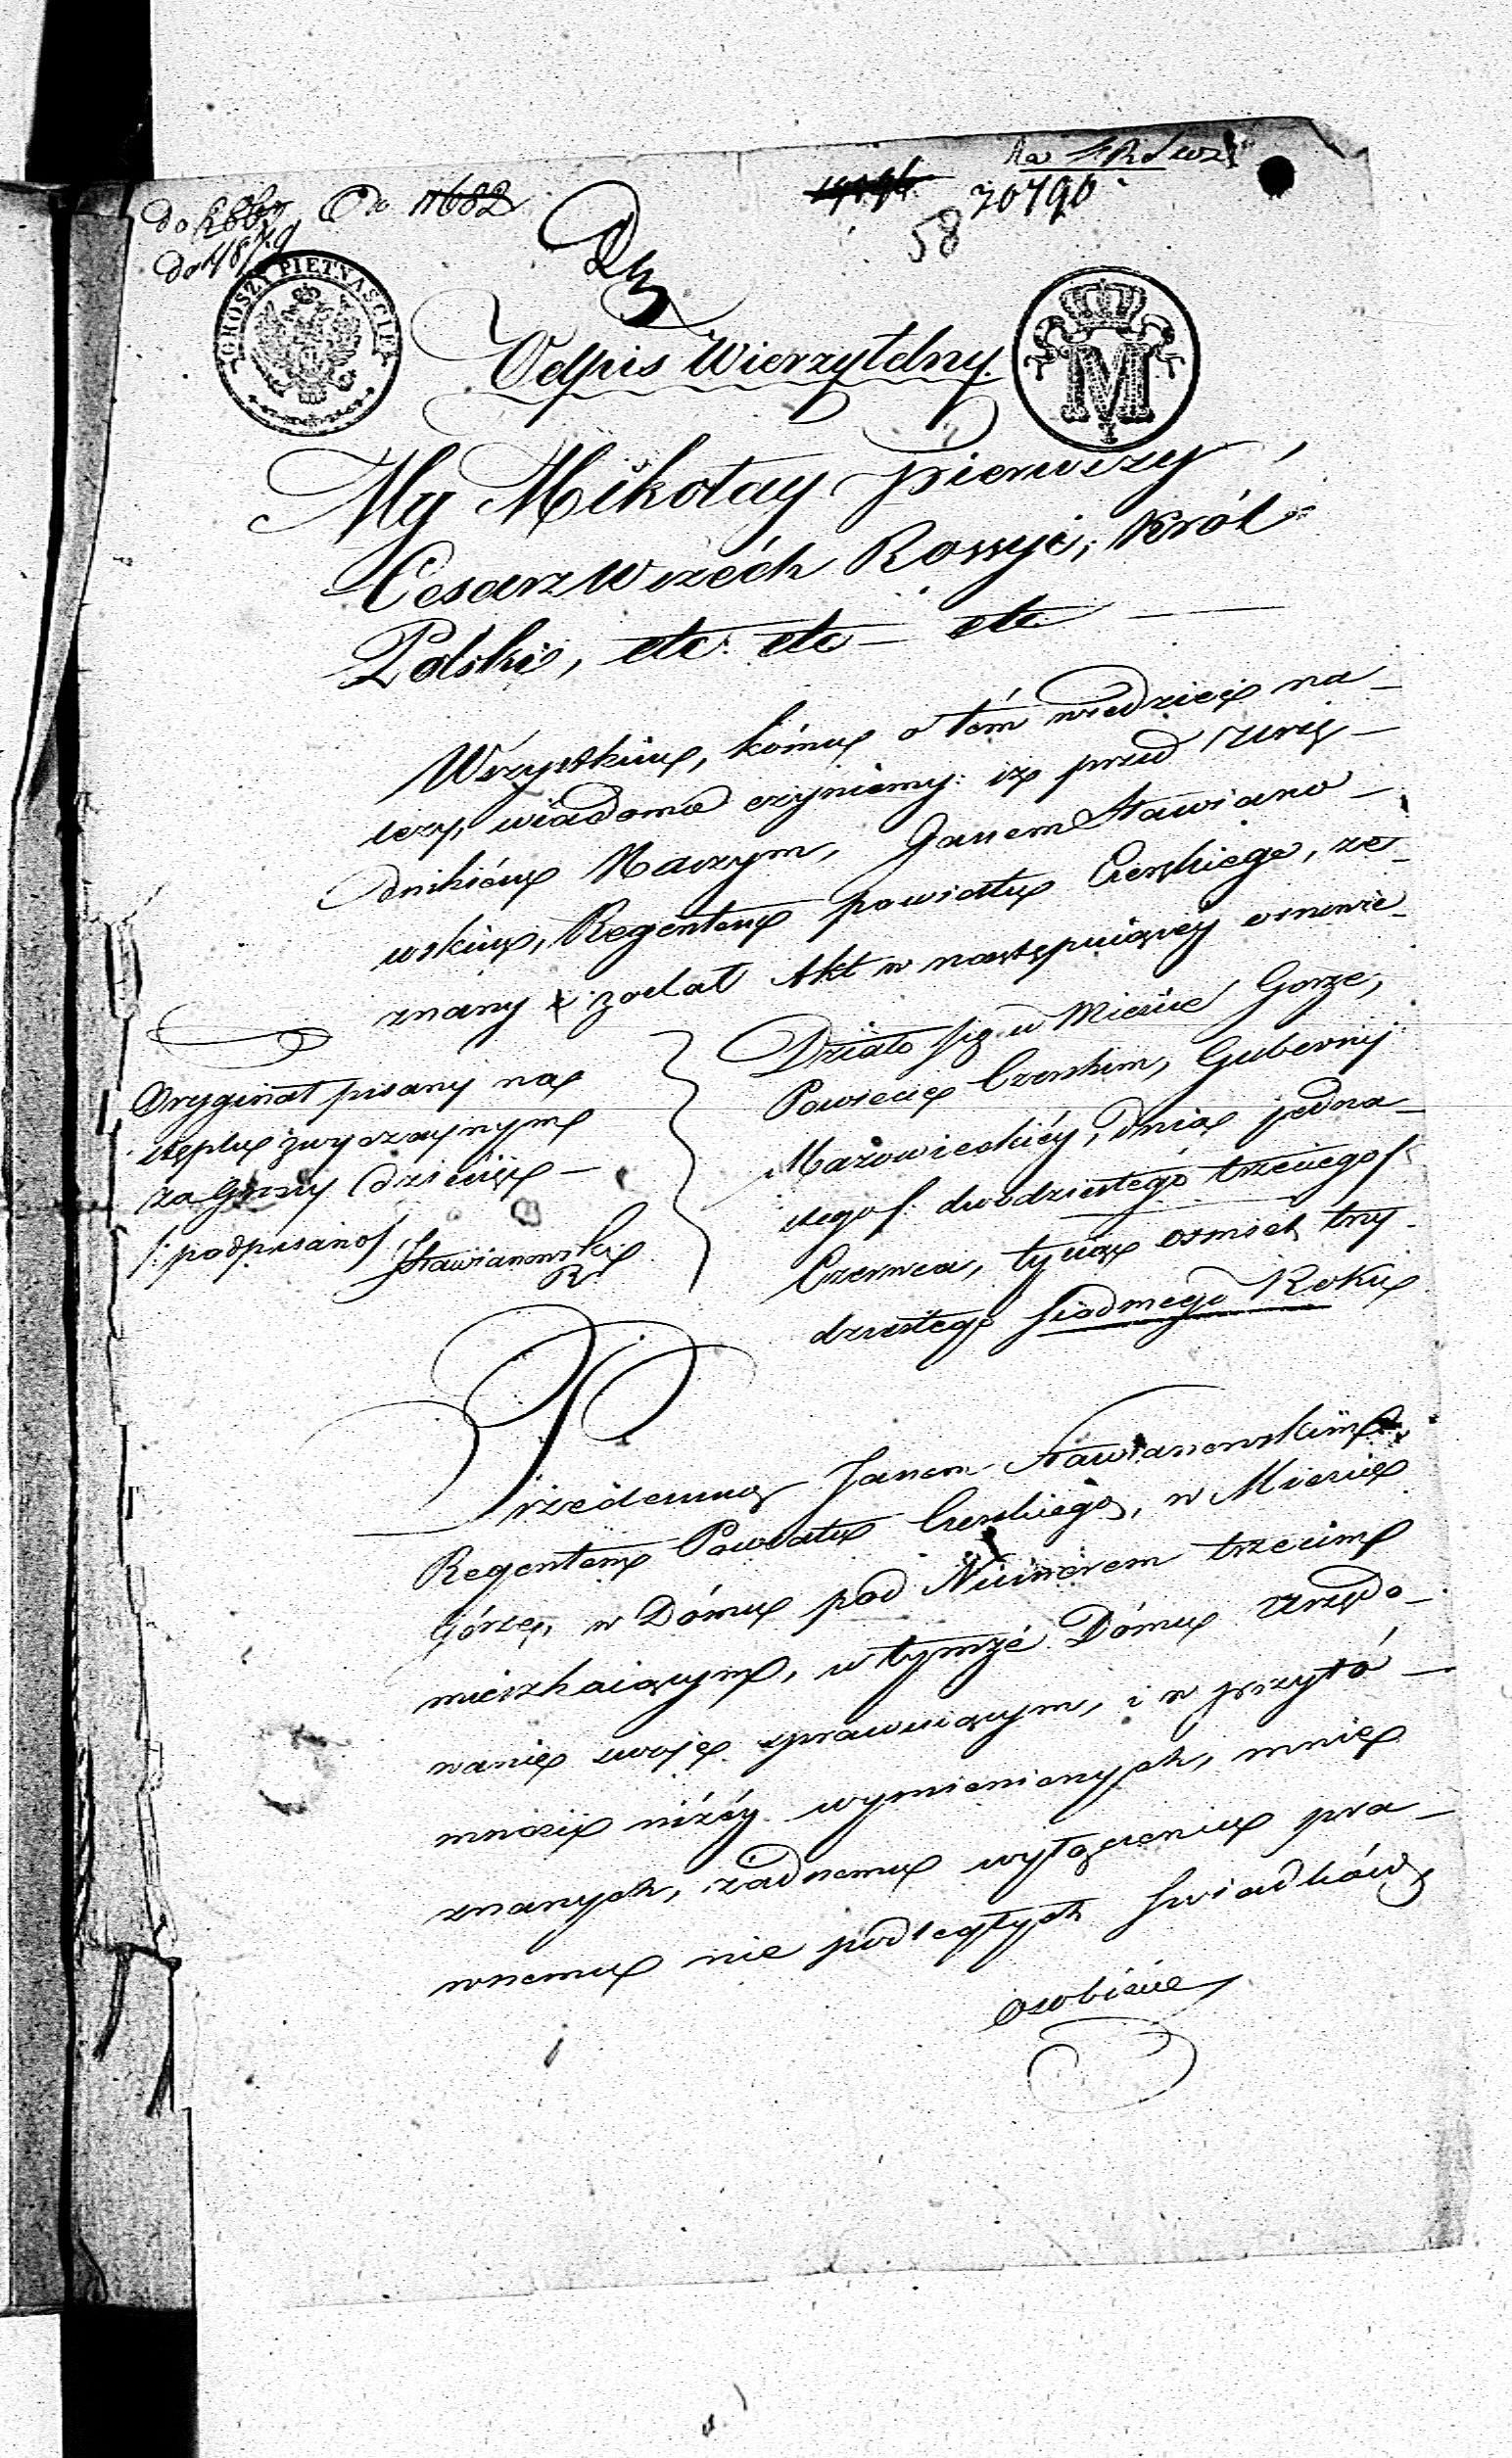 do
Do 11682
do 11879
20790
58
GROSZY PIETNAŚCIE
M
I
Odpis Wierzytelny.
My Mikołay pierwszy,
Cesarz Wszéch Rossyi, Król
Polski, etc. etc – etc –
Wszystkim, kómu o tém wiedzieć na–
leży, wiadomo czyniemy: iż przed Urzę–
dnikiém Naszym, Janem Stawiano–
wskim, Regentem powiatu Czerskiego, ze–
znany został Akt w następuiącéy osnowie–
Oryginał pisany na
stęplu zwyczaynym
za Groszy dziesięć –
/: podpisano/ JStawianowski
R
Działo się w Mieście Gorze,
Powiecie Czerskim, Gubernij
Mazowieckiéy, dnia jedna–
stego/: dwódziestégo trzeciego/
Czerwca, tysiąc osmset trzy–
dziestego siodmego Roku
Przedemną Janem Stawianowskim
Regentem Powiatu Czerskiego, w Mieście
Górze, w Dómu pod Numerem trzecim
mieszkaiącym, w tymże Dómu Urzędo–
wanie swoje sprawuiącym, i w przytó–
mności niżéy wymienionych, mnie
znanych, żadnemu wyłączeniu pra–
wnemu nie podległych Swiadków,
osobiście